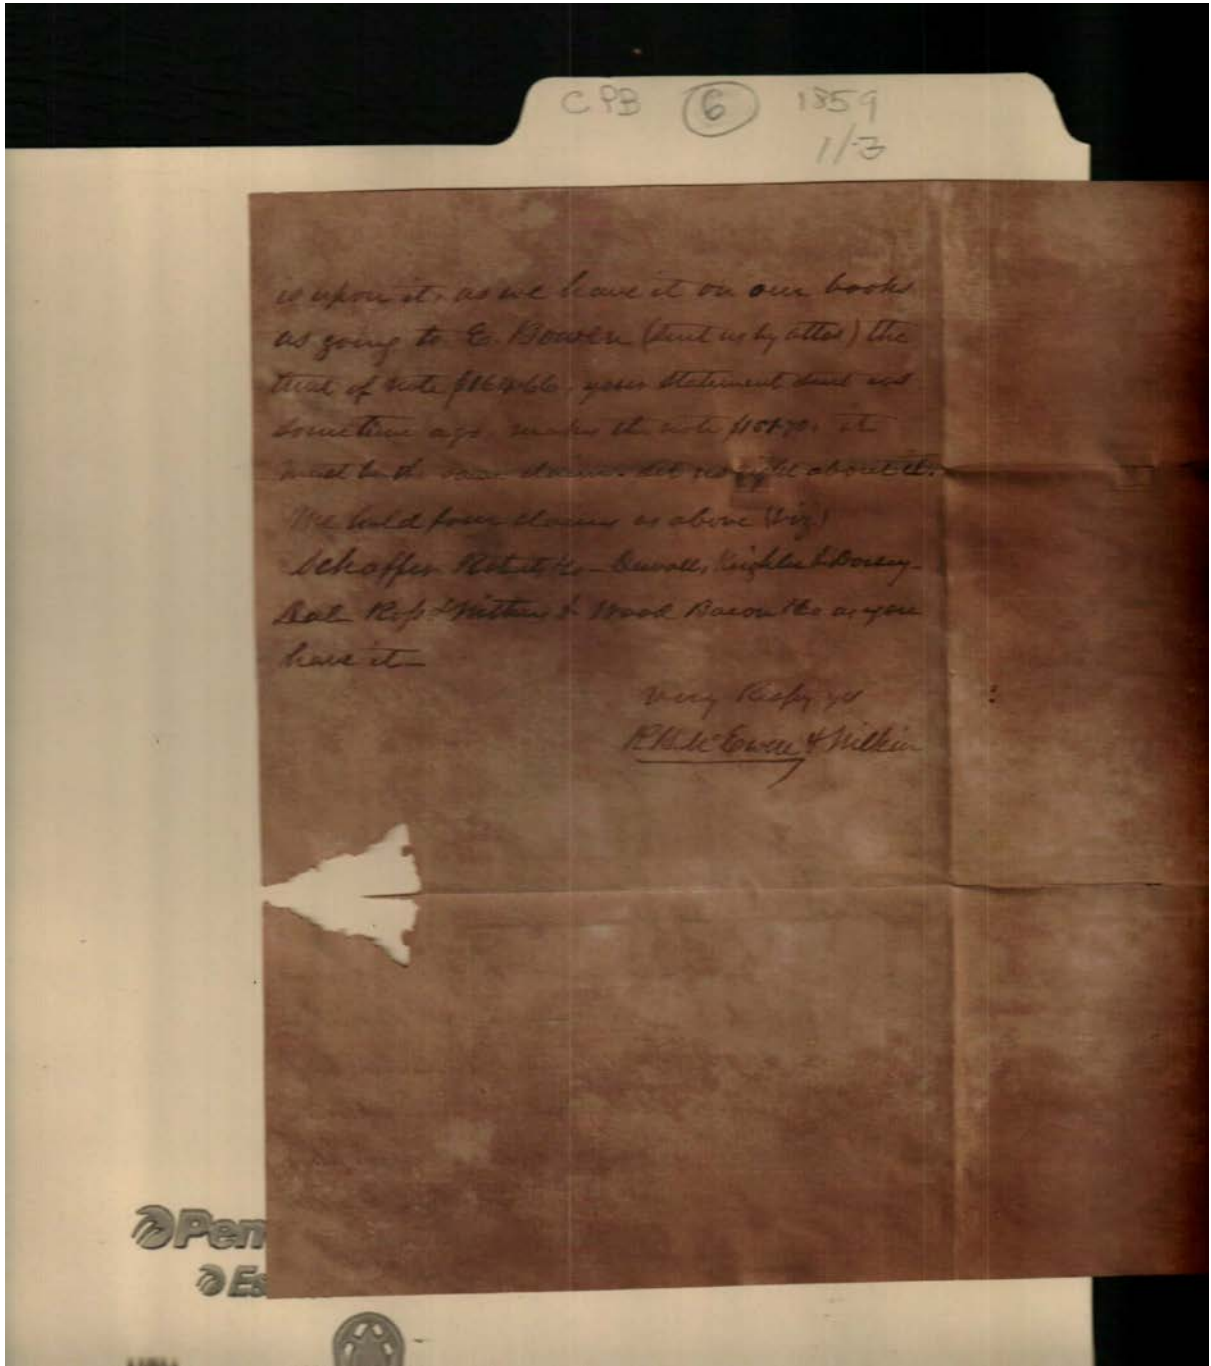 CPB 6 1859
1/3
is upon it, as we have it on our books
as going to E. Bowen (sent us by attos) the
of note your statement sent us
sometime ago, makes the note
must be the same claim. set us right about it.
We hold four claims as above (viz)
Schaffer Roberts &co - Duvall, Keighler & Dorsey -
Dale Ross & Withers & Wood Bacon &co as you
have it
Very Respy yrs
R.H. McEwen &
Pen
Es